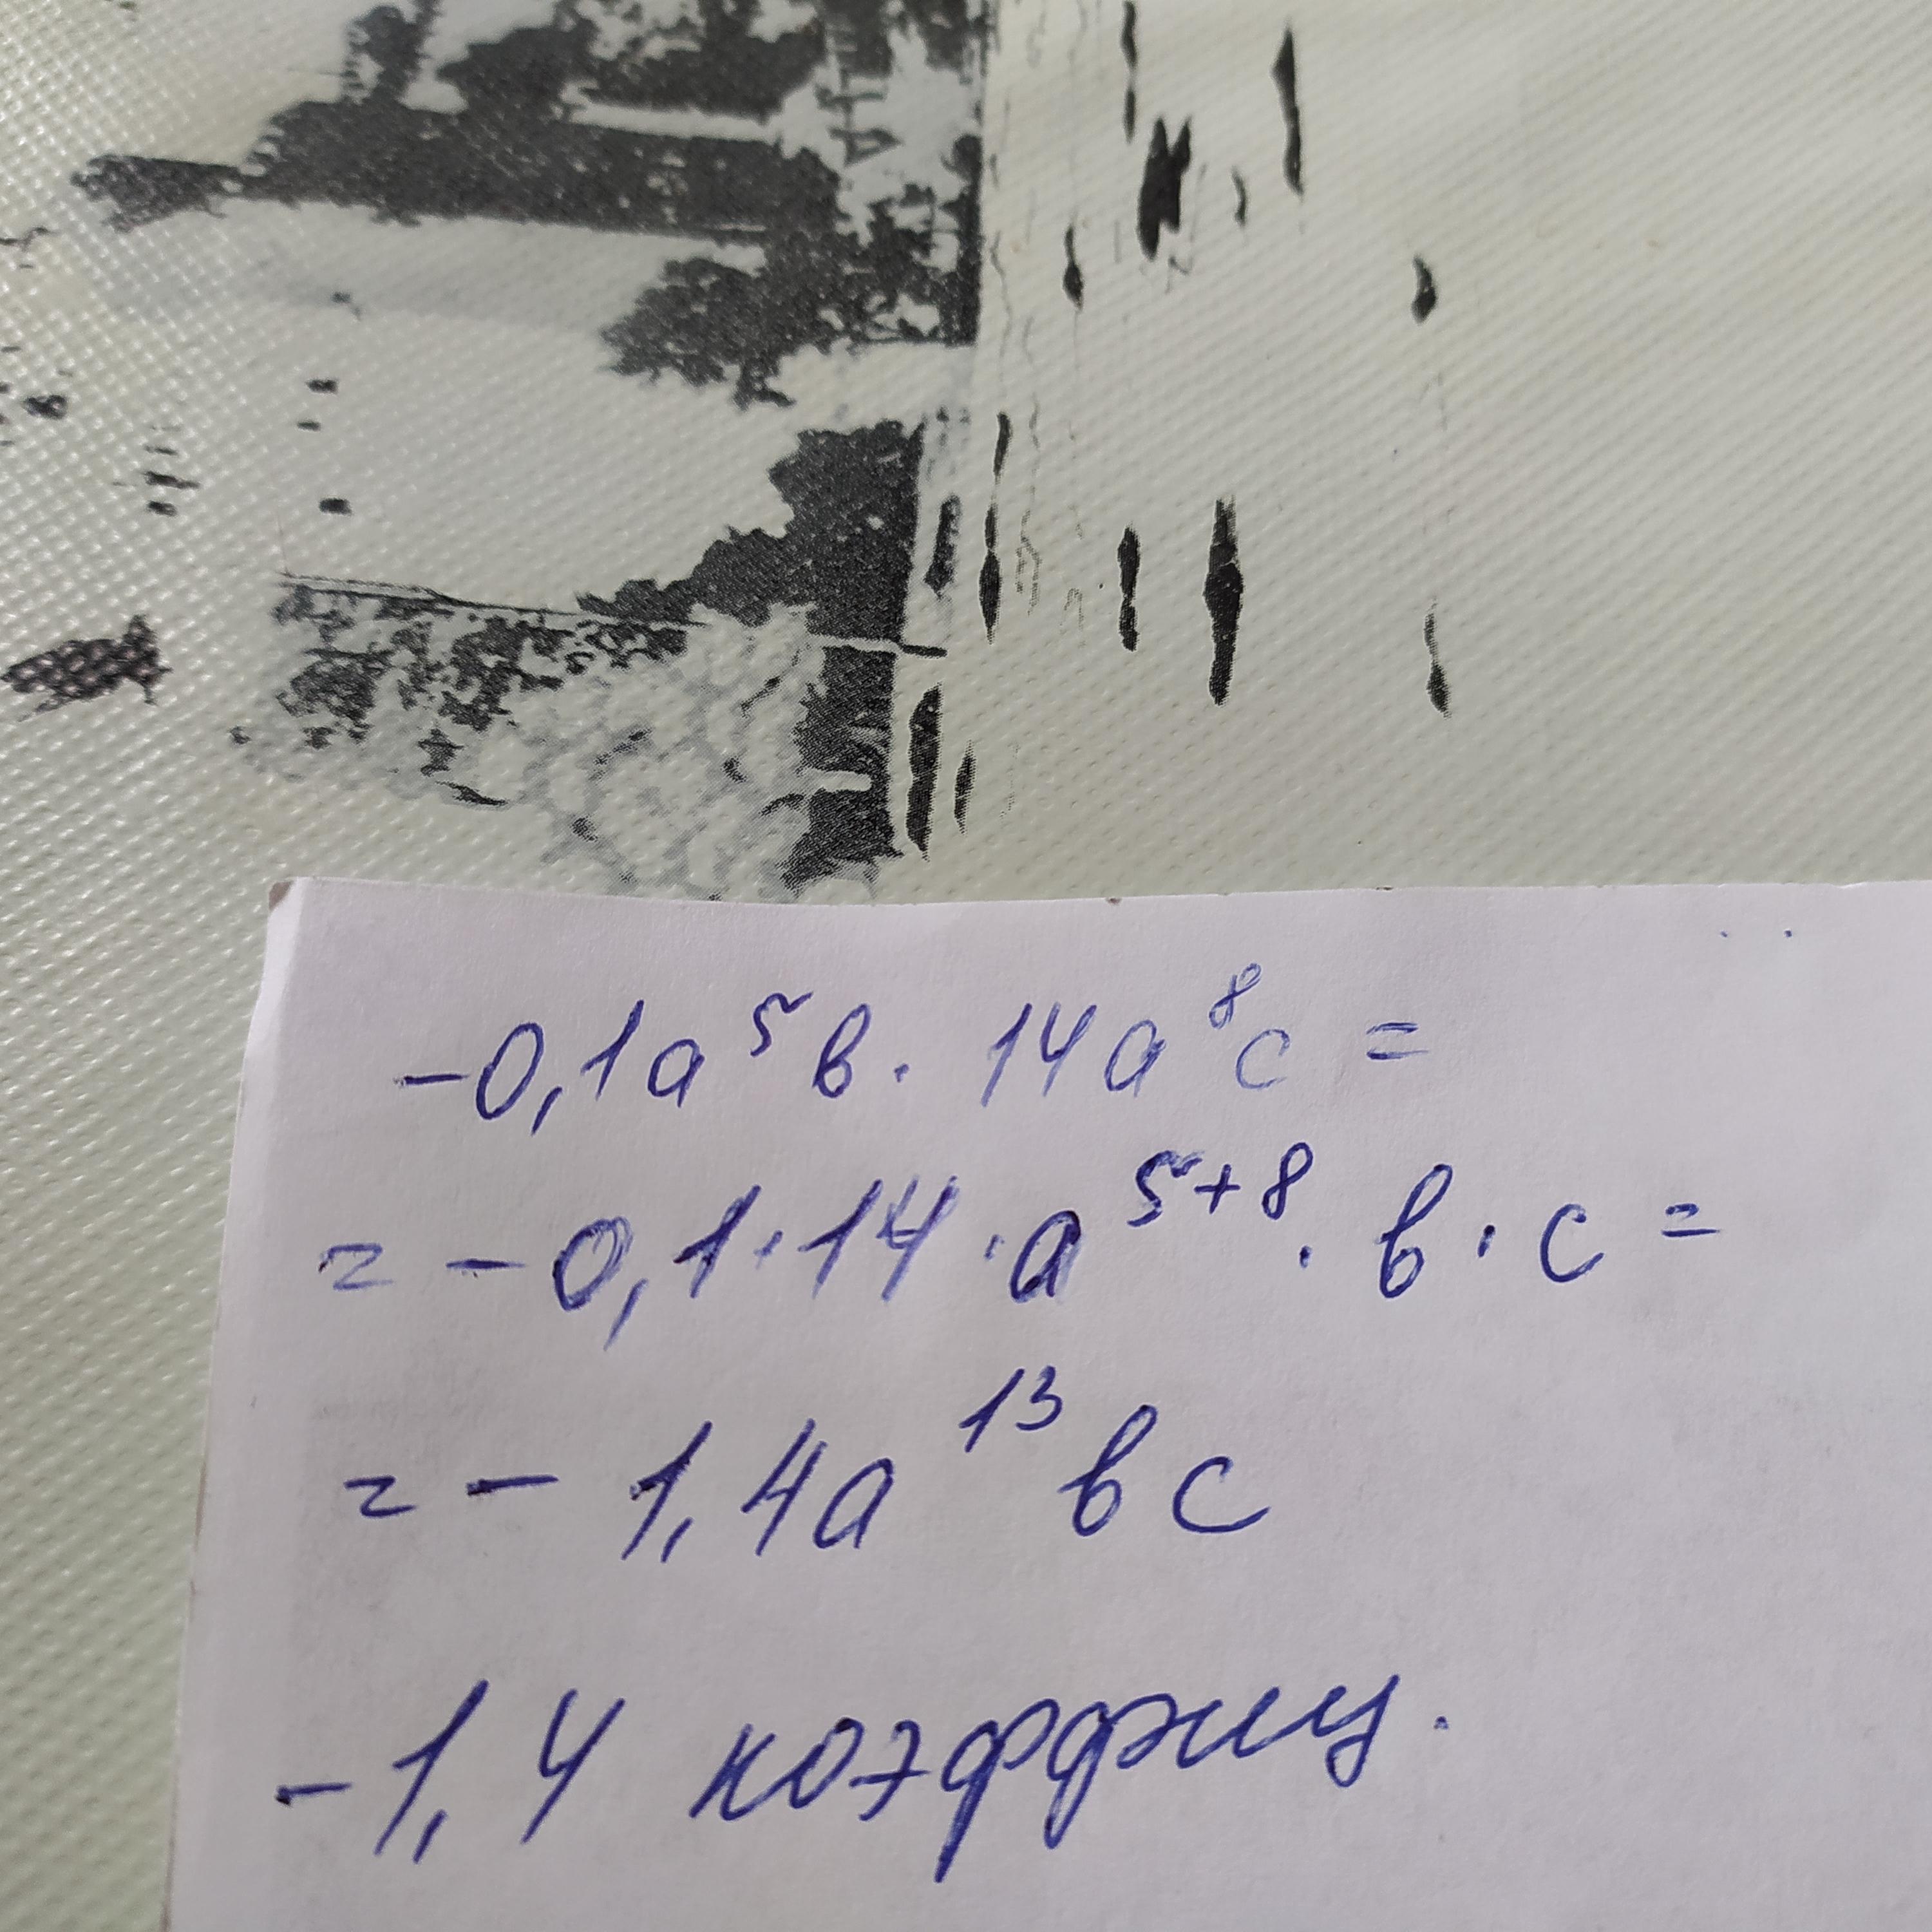 -0,1a⁵в · 14a⁸c =
= -0,1 · 14 · a⁵⁺⁸ · в · c =
= - 1,4a¹³вc
-1,4 коэффиц.